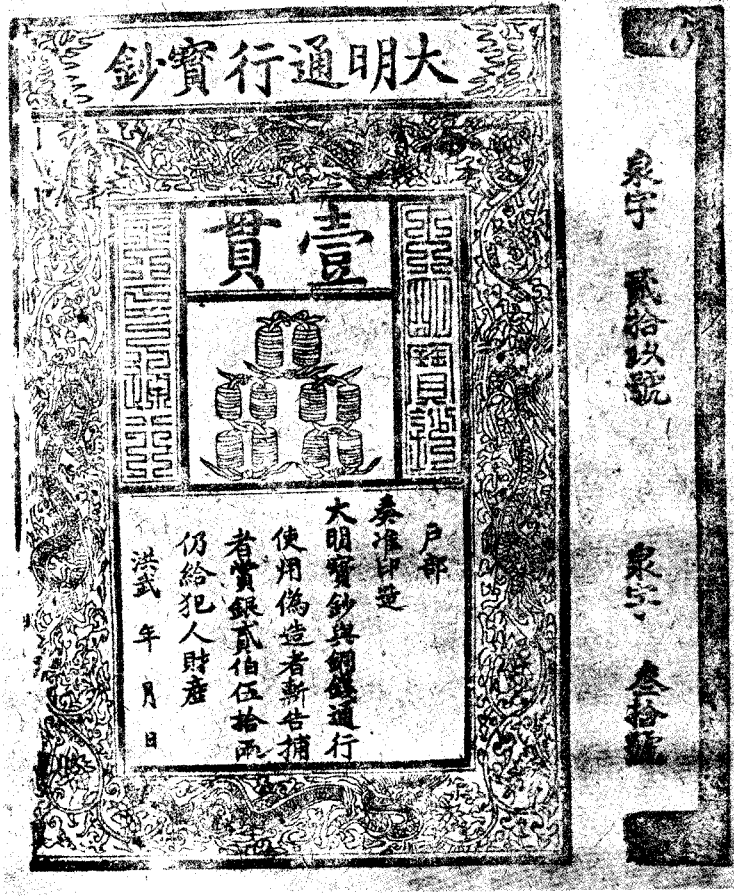 大明通行寶鈔
壹貫
大明寶鈔
天下通行
户部
奏准印造
大明寶鈔與銅錢通行
使用偽造者斬告捕
者賞銀貳伯伍拾兩
仍給犯人財產
洪武 年 月 日
泉字 貳拾玖號
泉字 叁拾號